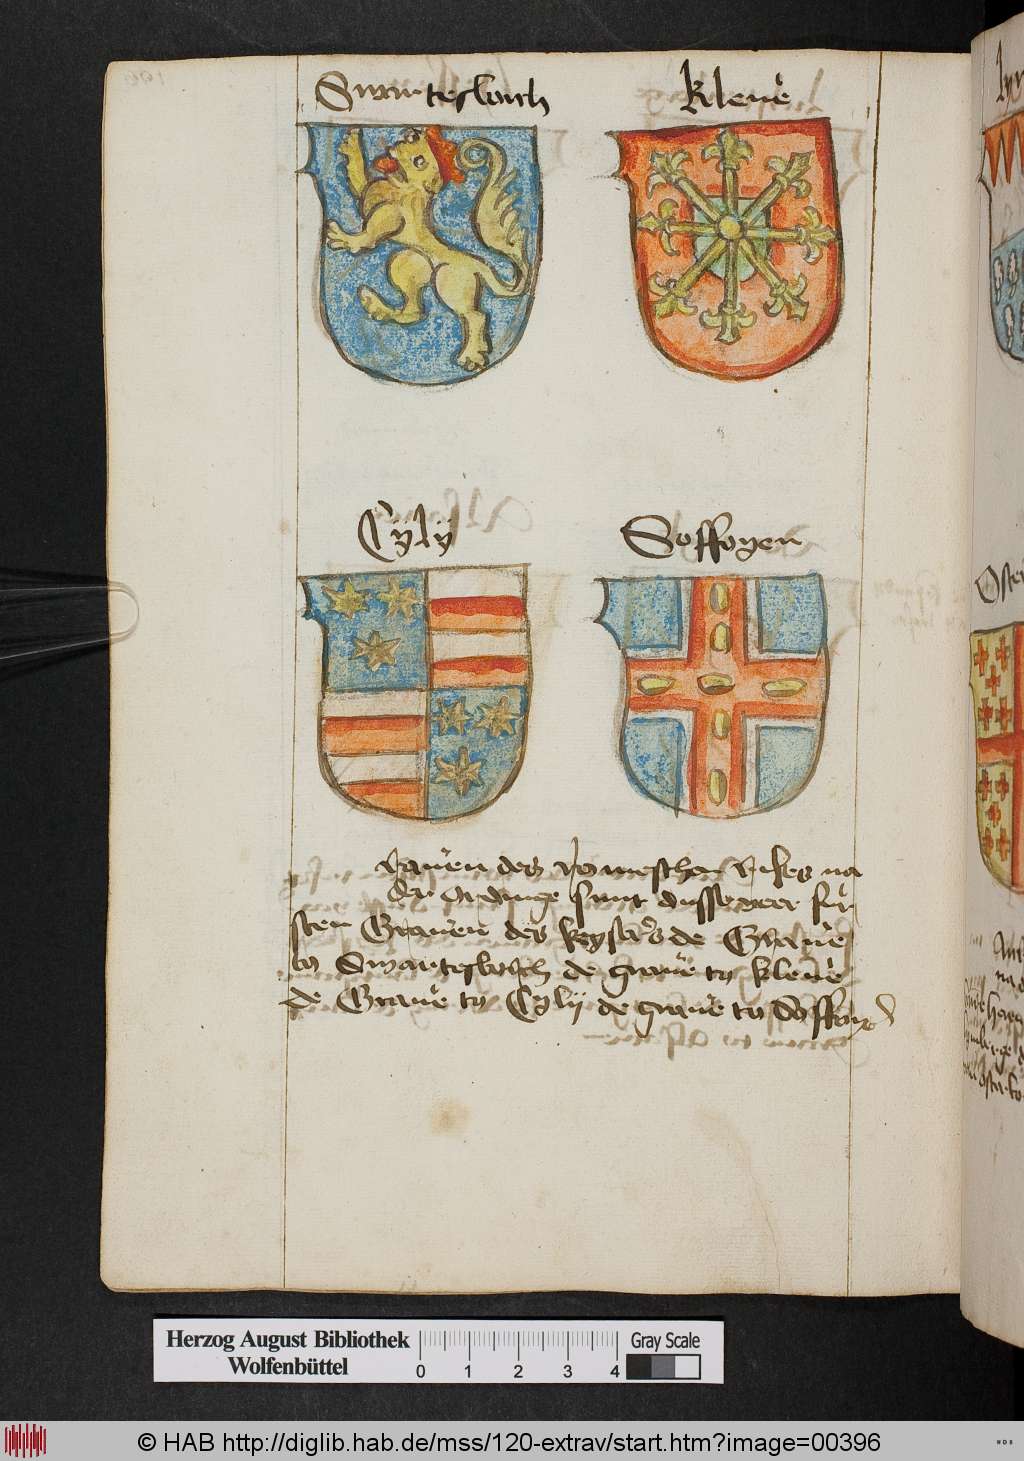 Swartesborch
Kleue
Cÿlÿ
Soffoyen
Grauen des romeschen rikes na
der ordinge sunt dusse veer fur
sten Grauen des keysers de Graue
to Swartesborch de graue to kleue
de Graue to Cylij de graue to Soffoye
Oster
Herzog August Bibliothek
Wolfenbüttel
0 1 2 3 4
Gray Scale
© HAB http://diglib.hab.de/mss/120-extrav/start.htm?image=00396